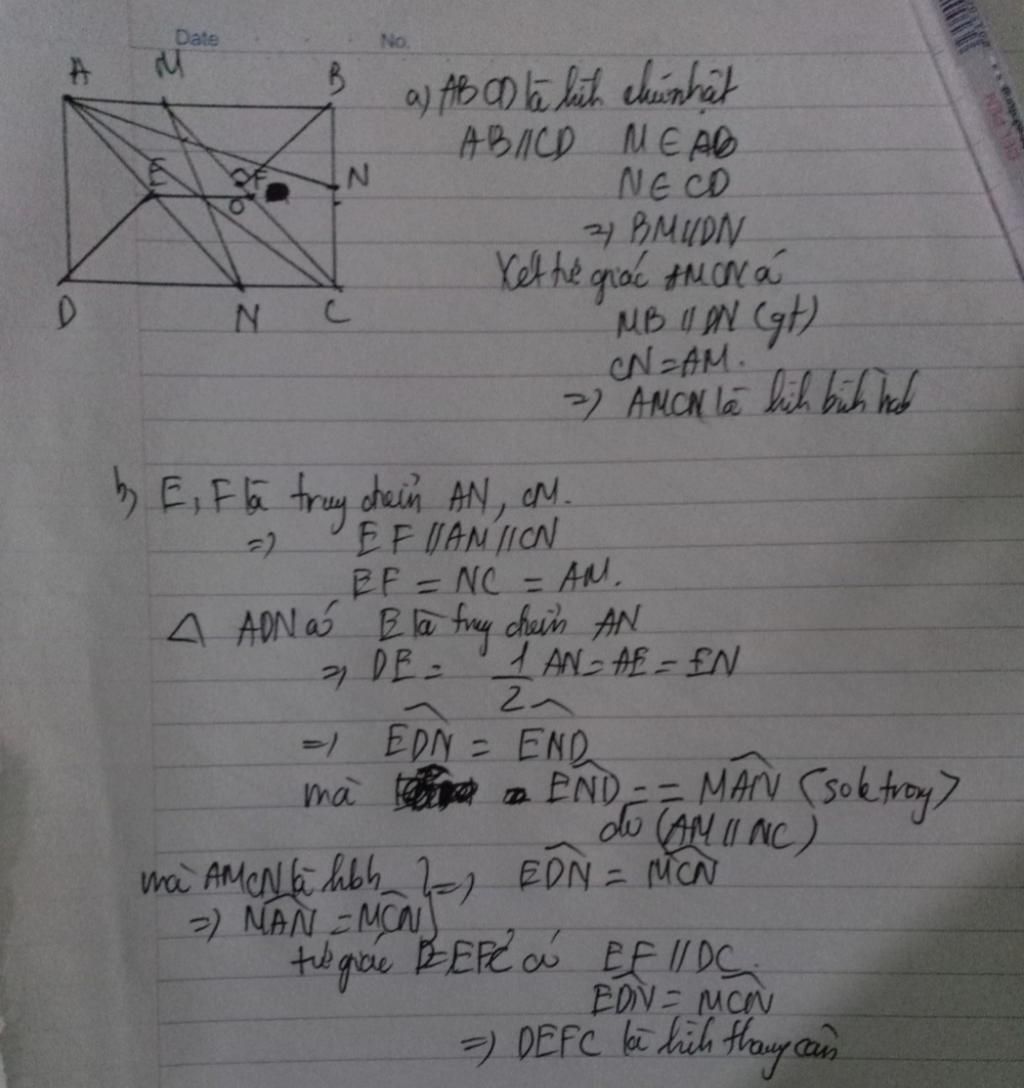 Date No.
A M B
E F N
O
D N C
a) ABCD là hình chữ nhật
AB//CD M ∈ AB
N ∈ CD
=> BM//DN
Xét tứ giác AMCN có
MB // DN (gt)
CN = AM.
=> AMCN là hình bình hành
b) E, F là trung điểm AN, CM.
=> EF //AM //CN
EF = NC = AM.
Δ ADN có E là trung điểm AN
=> DE = 1/2 AN = AE = EN
=> EDN = END
mà END = = MAN (so le trong)
do (AM // NC)
mà AMCN là hbh } => EDN = MCN
=> MAN = MCN
tứ giác DEFC có EF // DC.
EDN = MCN
=> DEFC là hình thang cân